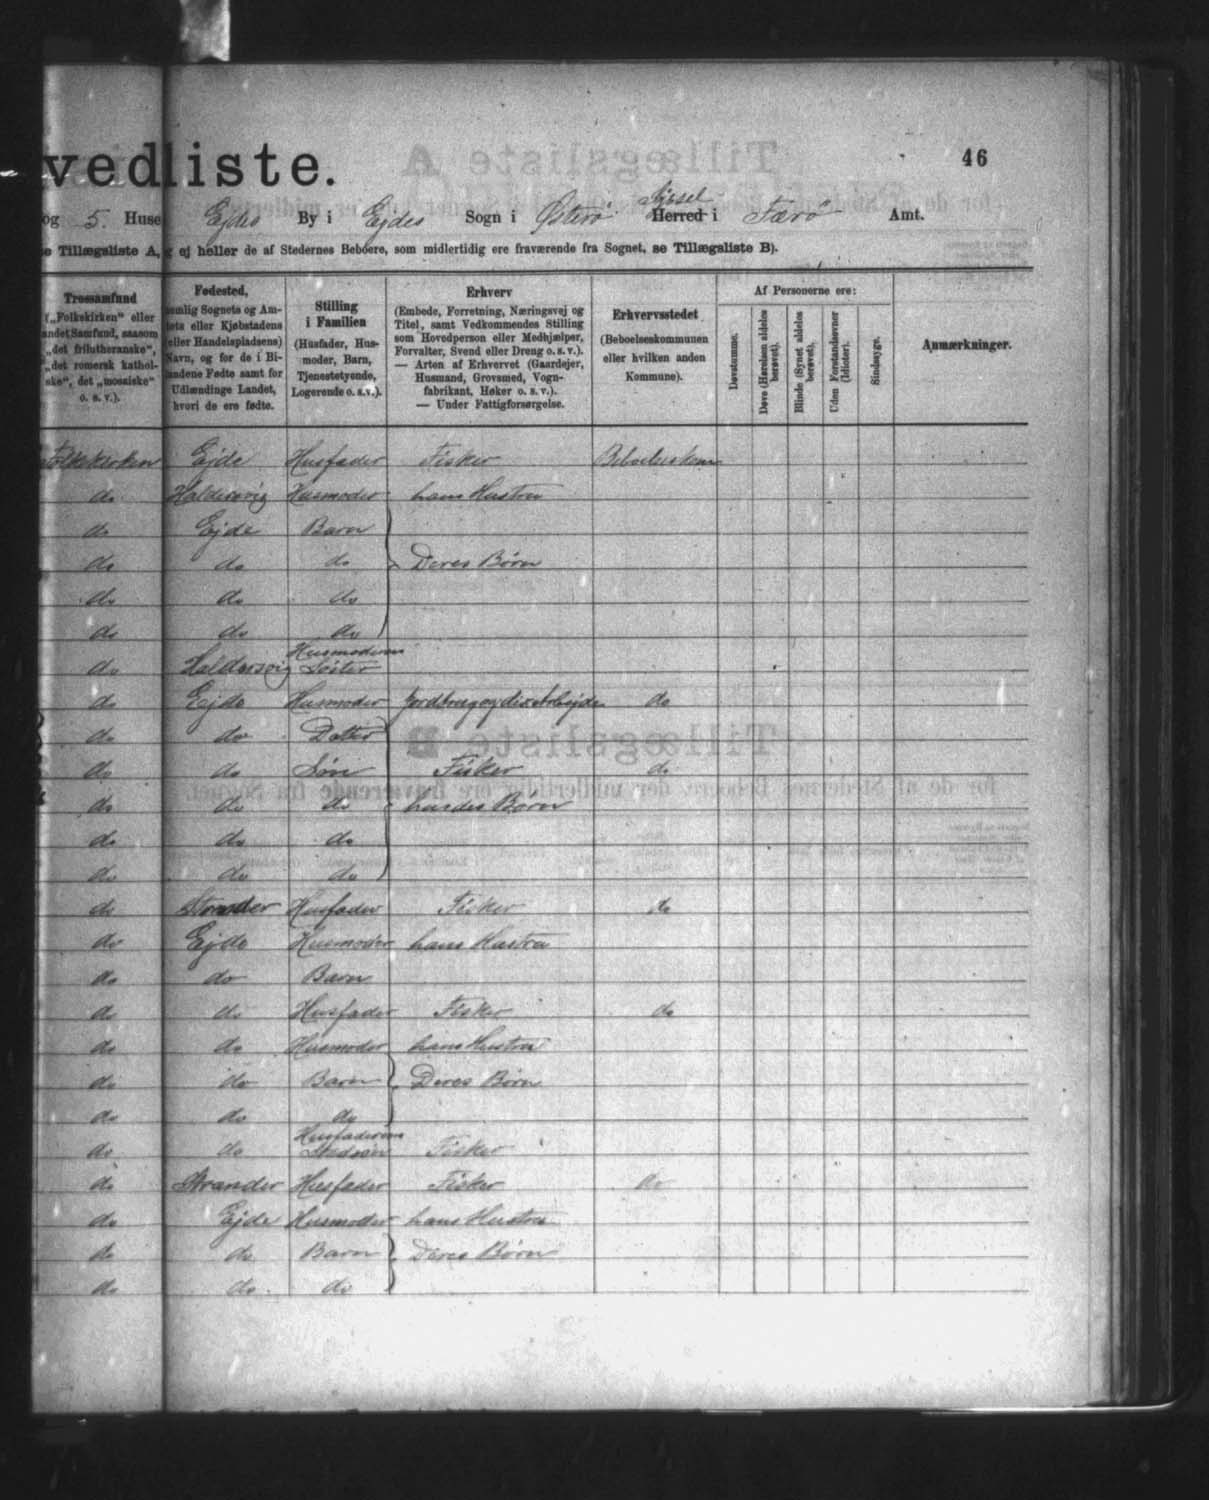 vedliste.
46
og 5. Huse Ejde By i Ejdes Sogn i Østerø Herred i Færø Amt.
Syssel
e Tillægsliste A, g ej heller de af Stedernes Beboere, som midlertidig ere fraværende fra Sognet, se Tillægsliste B).
Trossamfund
(„Folkekirken" eller
andet Samfund, saasom
„det frilutheranske",
„det romersk kathol-
ske", det „mosaiske"
o. s. v.).
Fødested,
nemlig Sognets og Am-
tets eller Kjøbstadens
(eller Handelspladsens)
Navn, og for de i Bi-
landene Fødte samt for
Udlændinge Landet,
hvori de ere fødte.
Stilling
i Familien
(Husfader, Hus-
moder, Barn,
Tjenestetyende,
Logerende o. s. v.).
Erhverv
(Embede, Forretning, Næringsvej og
Titel, samt Vedkommendes Stilling
som Hovedperson eller Medhjælper,
Forvalter, Svend eller Dreng o. s. v.).
— Arten af Erhvervet (Gaardejer,
Husmand, Grovsmed, Vogn-
fabrikant, Høker o. s. v.).
— Under Fattigforsørgelse.
Erhvervsstedet
(Beboelseskommunen
eller hvilken anden
Kommune).
Af Personerne ere:
Døvstumme.
Døve (Hørelsen aldeles
berøvet).
Blinde (Synet aldeles
berøvet).
Uden Forstandsevner
(Idioter).
Sindssyge.
Anmærkninger.
Folkekirken Ejde Husfader Fisker Beboelseskom
do Haldersvig Husmoder hans Hustru
do Ejde Barn
do do do Deres Børn
do do do
do do do
do Haldersvig Husmoderens Søster
do Ejde Husmoder Jordbrug do
do do Datter
do do Søn Fisker do
do do do hendes Børn
do do do
do do do
do Strander Husfader Fisker do
do Ejde Husmoder hans Hustru
do do Barn
do do Husfader Fisker do
do do Husmoder hans Hustru
do do Barn Deres Børn
do do do
do do Husfaderens Stedsøn Fisker
do Strander Husfader Fisker do
do Ejde Husmoder hans Hustru
do do Barn Deres Børn
do do do